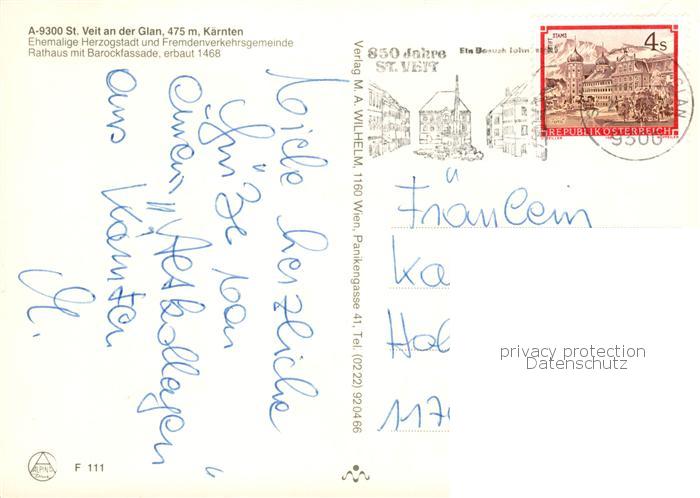 A-9300 St. Veit an der Glan, 475 m, Kärnten
Ehemalige Herzogstadt und Fremdenverkehrsgemeinde
Rathaus mit Barockfassade, erbaut 1468
Viele herzliche
Grüße von
aus Kärnten
M.
Verlag M. A. WILHELM, 1160 Wien, Panikengasse 41, Tel. (0222) 920466
850 Jahre
ST. VEIT
Ein Besuch lohnt
STIFT STAMS
4 S
REPUBLIK ÖSTERREICH
GLAN
9300
Fräulein
Ka
Hal
117
privacy protection
Datenschutz
ALPINE
F 111